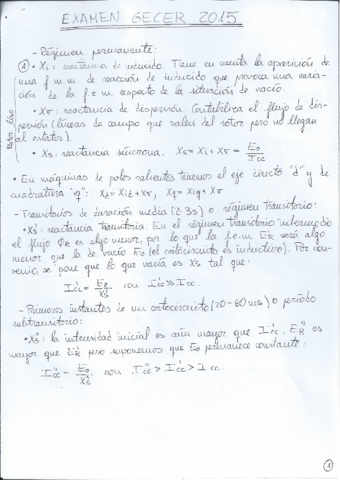 EXAMEN GECER 2015
- Régimen permanente:
① • Xi: reactancia de inducido. Tiene en cuenta la aparición de
una f.m.m. de reacción de inducido que provoca una varia-
ción de la f.e.m. respecto de la situación de vacío.
• Xσ: reactancia de dispersión. Contabiliza el flujo de dis-
persión (líneas de campo que salen del rotor pero no llegan
al estator).
• Xs: reactancia síncrona. Xs = Xi + Xσ = Eo / Icc
• En máquinas de polos salientes tenemos el eje directo "d" y de
cuadratura "q": Xd = Xid + Xσ, Xq = Xiq + Xσ
- Transitorios de duración media (2-3s) o régimen transitorio:
• Xs': reactancia transitoria. En el régimen transitorio
el flujo es algo menor, por lo que la f.e.m. ER será algo
menor que la de vacío Eo (el cortocircuito es inductivo). Por con-
venio, se pone que lo que varía es Xs tal que:
I'cc = Eo / X's con I'cc >> Icc
- Primeros instantes de un cortocircuito (20-60ms) o periodo
subtransitorio:
• Xs": la intensidad inicial es aún mayor que I'cc. ER" es
mayor que ER' pero suponemos que Eo permanece constante:
I"cc = Eo / X"s con I"cc > I'cc > Icc
1